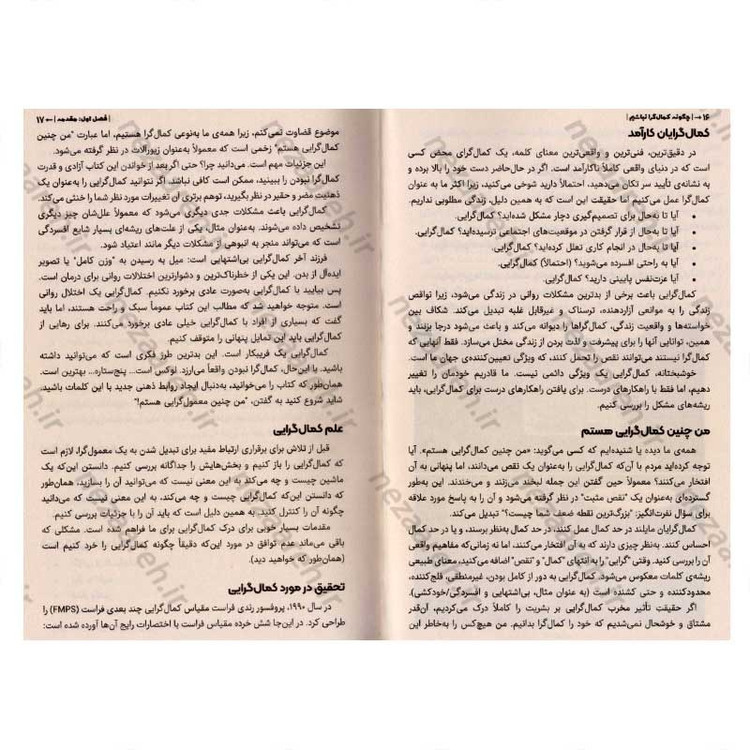 ۱۶ → | چگونه کمال‌گرا نباشیم |
کمال‌گرایان کارآمد
در دقیق‌ترین، فنی‌ترین و واقعی‌ترین معنای کلمه، یک کمال‌گرای محض کسی
است که در دنیای واقعی کاملاً ناکارآمد است. اگر در حال‌حاضر دست خود را بالا برده و
به نشانه‌ی تأیید سر تکان می‌دهید، احتمالاً دارید شوخی می‌کنید، زیرا اکثر ما به عنوان
کمال‌گرا عمل می‌کنیم اما حقیقت این است که به همین دلیل، زندگی مطلوبی نداریم.
• آیا تا به‌حال برای تصمیم‌گیری دچار مشکل شده‌اید؟ کمال‌گرایی.
• آیا تا به‌حال از قرار گرفتن در موقعیت‌های اجتماعی ترسیده‌اید؟ کمال‌گرایی.
• آیا تا به‌حال در انجام کاری تعلل کرده‌اید؟ کمال‌گرایی.
• آیا به راحتی افسرده می‌شوید؟ (احتمالاً) کمال‌گرایی.
• آیا عزت‌نفس پایینی دارید؟ کمال‌گرایی.
کمال‌گرایی باعث برخی از بدترین مشکلات روانی در زندگی می‌شود، زیرا نواقص
زندگی را به موانعی آزاردهنده، ترسناک و غیرقابل غلبه تبدیل می‌کند. شکاف بین
خواسته‌ها و واقعیت زندگی، کمال‌گراها را دیوانه می‌کند و باعث می‌شود درجا بزنند و
همین، توانایی آنها را برای پیشرفت و لذت بردن از زندگی مختل می‌سازد. فقط آنهایی که
کمال‌گرا نیستند می‌توانند نقص را تحمل کنند، که ویژگی تعیین‌کننده‌ی جهان ما است.
خوشبختانه، کمال‌گرایی یک ویژگی دائمی نیست. ما قادریم خودمان را تغییر
دهیم، اما فقط با راهکارهای درست. برای یافتن راهکارهای درست برای کمال‌گرایی، باید
ریشه‌های مشکل را بررسی کنیم.
من چنین کمال‌گرایی هستم
همه‌ی ما دیده یا شنیده‌ایم که کسی می‌گوید: «من چنین کمال‌گرایی هستم». آیا
توجه کرده‌اید مردم با آن‌که کمال‌گرایی را به‌عنوان یک نقص می‌دانند، اما پنهانی به آن
افتخار می‌کنند؟ معمولاً حین گفتن این جمله لبخند می‌زنند و می‌خندند. این به‌طور
گسترده‌ای به‌عنوان یک "نقص مثبت" در نظر گرفته می‌شود و آن را به پاسخ مورد علاقه
برای سؤال نفرت‌انگیز: "بزرگ‌ترین نقطه ضعف شما چیست؟" تبدیل می‌کند.
کمال‌گرایان مایلند در حد کمال عمل کنند، در حد کمال به‌نظر برسند، و یا در حد کمال
احساس کنند. به‌نظر چیزی دارند که به آن افتخار می‌کنند، اما نه زمانی‌که مفاهیم واقعی
آن را بررسی کنید. وقتی "گرایی" را به انتهای "کمال" و "نقص" اضافه می‌کنید، معنای طبیعی
ریشه‌ی کلمات معکوس می‌شود. کمال‌گرایی به دور از کامل بودن، غیرمنطقی، فلج‌کننده،
محدودکننده و حتی کشنده است (به عنوان مثال، بی‌اشتهایی و افسردگی/خودکشی).
اگر حقیقتِ تأثیر مخرب کمال‌گرایی بر بشریت را کاملاً درک می‌کردیم، آن‌قدر
مشتاق و خوشحال نمی‌شدیم که خود را کمال‌گرا بدانیم. من هیچ‌کس را به‌خاطر این
| فصل اول: مقدمه | ← ۱۷
موضوع قضاوت نمی‌کنم، زیرا همه‌ی ما به‌نوعی کمال‌گرا هستیم، اما عبارت "من چنین
کمال‌گرایی هستم" زخمی است که معمولاً به‌عنوان زیورآلات در نظر گرفته می‌شود.
این جزئیات مهم است. می‌دانید چرا؟ حتی اگر بعد از خواندن این کتاب آزادی و قدرت
کمال‌گرا نبودن را ببینید، ممکن است کافی نباشد. اگر نتوانید کمال‌گرایی را به‌عنوان یک
ذهنیت مضر و حقیر در نظر بگیرید، توهم برتری آن تغییرات مورد نظر شما را خنثی می‌کند.
کمال‌گرایی باعث مشکلات جدی دیگری می‌شود که معمولاً علل‌شان چیز دیگری
تشخیص داده می‌شوند. به‌عنوان مثال، یکی از علت‌های ریشه‌ای بسیار شایع افسردگی
است که می‌تواند منجر به انبوهی از مشکلات دیگر مانند اعتیاد شود.
فرزند آخر کمال‌گرایی بی‌اشتهایی است: میل به رسیدن به "وزن کامل" یا تصویر
ایده‌آل از بدن. این یکی از خطرناک‌ترین و دشوارترین اختلالات روانی برای درمان است.
پس بیایید با کمال‌گرایی به‌صورت عادی برخورد نکنیم. کمال‌گرایی یک اختلال روانی
است. متوجه خواهید شد که مطالب این کتاب عموماً سبک و راحت هستند، اما باید
گفت که بسیاری از افراد با کمال‌گرایی خیلی عادی برخورد می‌کنند. برای رهایی از
کمال‌گرایی باید این تمایل پنهانی را متوقف کنیم.
کمال‌گرایی یک فریبکار است. این بدترین طرز فکری است که می‌توانید داشته
باشید. با این‌حال، کمال‌گرا نبودن واقعاً می‌ارزد. لوکس است... پنج‌ستاره... بهترین است.
همان‌طور که کتاب را می‌خوانید، به‌دنبال ایجاد روابط ذهنی جدید با این کلمات باشید.
شاید شروع کنید به گفتن، "من چنین معمول‌گرایی هستم!"
علم کمال‌گرایی
قبل از تلاش برای برقراری ارتباط مفید برای تبدیل شدن به یک معمول‌گرا، لازم است
که کمال‌گرایی را باز کنیم و بخش‌هایش را جداگانه بررسی کنیم. دانستن این‌که یک
ماشین چیست و چه می‌کند به این معنی نیست که می‌توانید آن را بسازید، همان‌طور
که دانستن این‌که کمال‌گرایی چیست و چه می‌کند، به این معنی نیست که می‌دانید
چگونه آن را کنترل کنید. به همین دلیل است که باید آن را با جزئیات بررسی کنیم.
مقدمات بسیار خوبی برای درک کمال‌گرایی برای ما فراهم شده است. مشکلی که
باقی می‌ماند عدم توافق در مورد این‌که دقیقاً چگونه کمال‌گرایی را خرد کنیم است
(همان‌طور که خواهید دید).
تحقیق در مورد کمال‌گرایی
در سال ۱۹۹۰، پروفسور رندی فراست مقیاس کمال‌گرایی چند بعدی فراست (FMPS) را
طراحی کرد. در این‌جا شش خرده مقیاس فراست با اختصارات رایج آن‌ها آورده شده است: